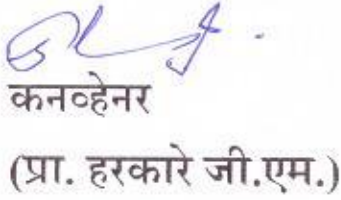 कनव्हेनर
(प्रा. हरकारे जी.एम.)